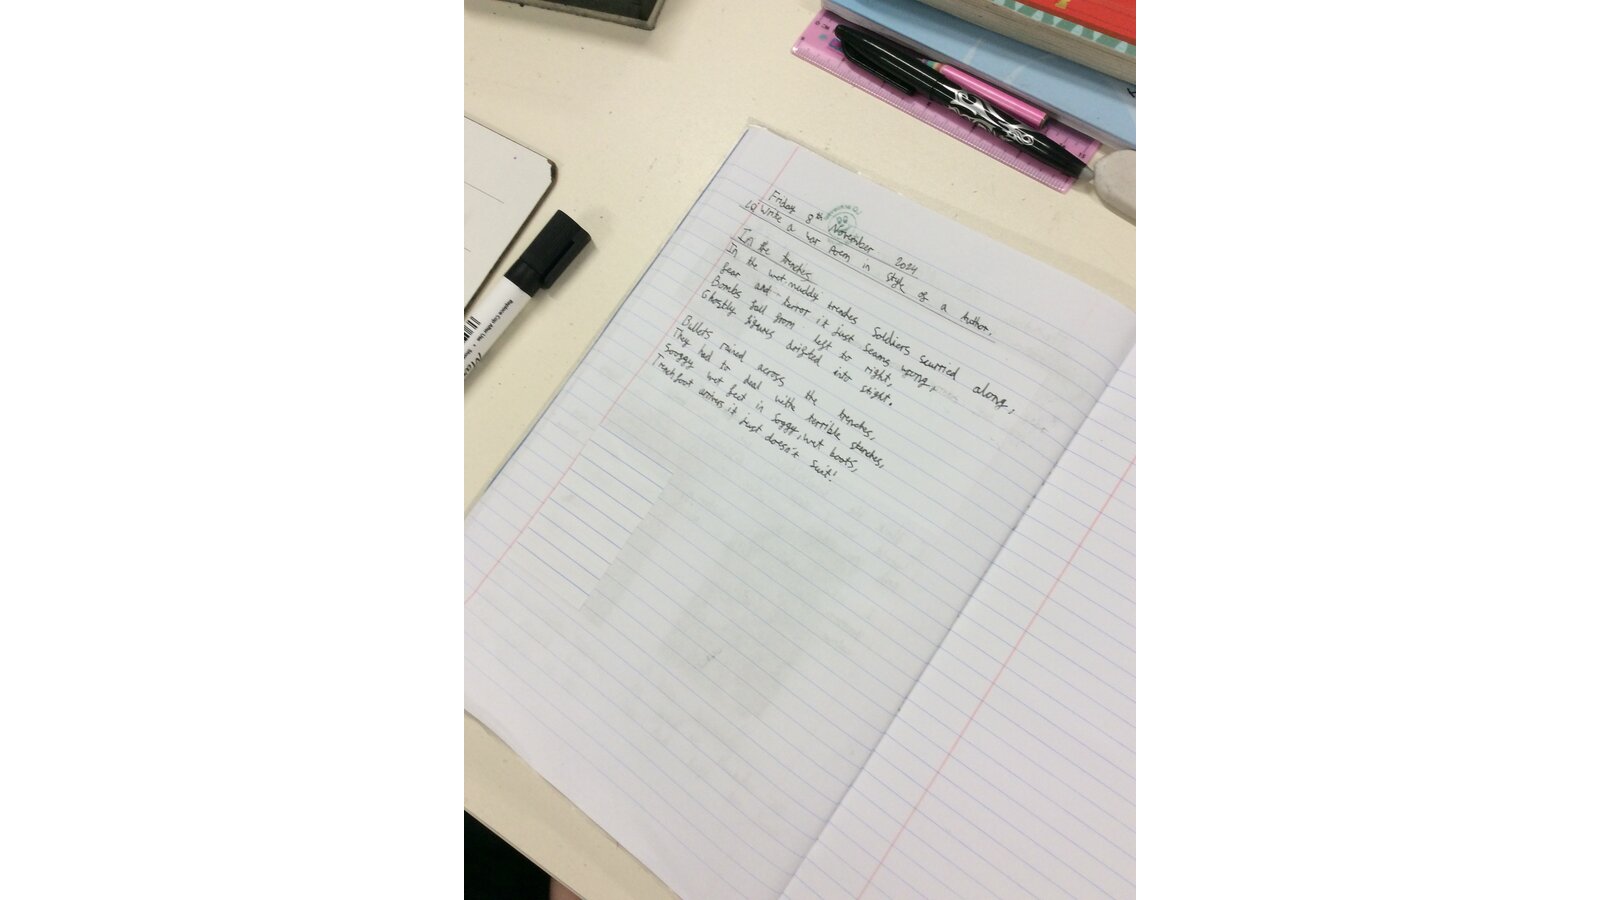 Friday 8th November 2024
LQ Write a war Poem in style of a Author.
In the trenches
In the wet-muddy trenches Soldiers scurried along,
fear and terror it just seams wrong,
Bombs fall from left to right,
Ghostly figures drifted into stight.
Bullets rained across the trenches,
They had to deal withe terrible stenches,
Sooggy wet feet in soggy, wet boots,
Trenchfoot arrives it just doesn't suit!
Replace Cap After Use